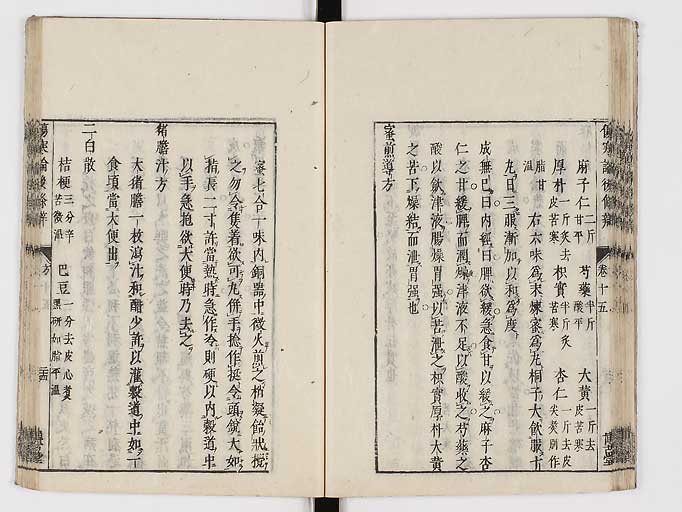 傷寒論後條辨 卷十五
麻子仁 二斤 甘平 芍藥 半斤 酸平 大黃 一斤去皮苦寒
厚朴 一斤炙去皮苦寒 枳實 半斤炙苦寒 杏仁 一斤去皮尖熬別作
脂甘溫 右六味為末煉蜜為丸桐子大飲服十
丸日三服漸加以和為度
成無已曰内經曰脾欲緩急食甘以緩之麻子杏
仁之甘緩脾而潤燥津液不足以酸收之芍藥之
酸以歛津液腸燥胃强以苦泄之枳實厚朴大黃
之苦下燥結而泄胃强也
蜜煎導方
蜜七合一味内銅器中微火煎之稍凝飴狀攪
之勿令焦着欲可丸併手捻作挺令頭銳大如
指長二寸許當熱時急作冷則硬以内穀道中
以手急抱欲大便時乃去之
猪膽汁方
大猪膽一枚瀉汁和醋少許以灌穀道中如一
食頃當大便出
二白散
桔梗 三分辛苦微溫 巴豆 一分去皮心煮黑研如脂平溫
傷寒論後條辨 方